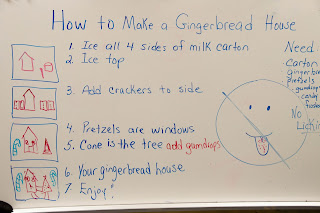 How to Make a Gingerbread House
1. Ice all 4 sides of milk carton
2. Ice top
3. Add crackers to side
4. Pretzels are windows
5. Cone is the tree add gumdrops
6. Your gingerbread house
7. Enjoy!
Need
Carton
gingerbre
pretzels
gumdrops
candy
No
Lickin